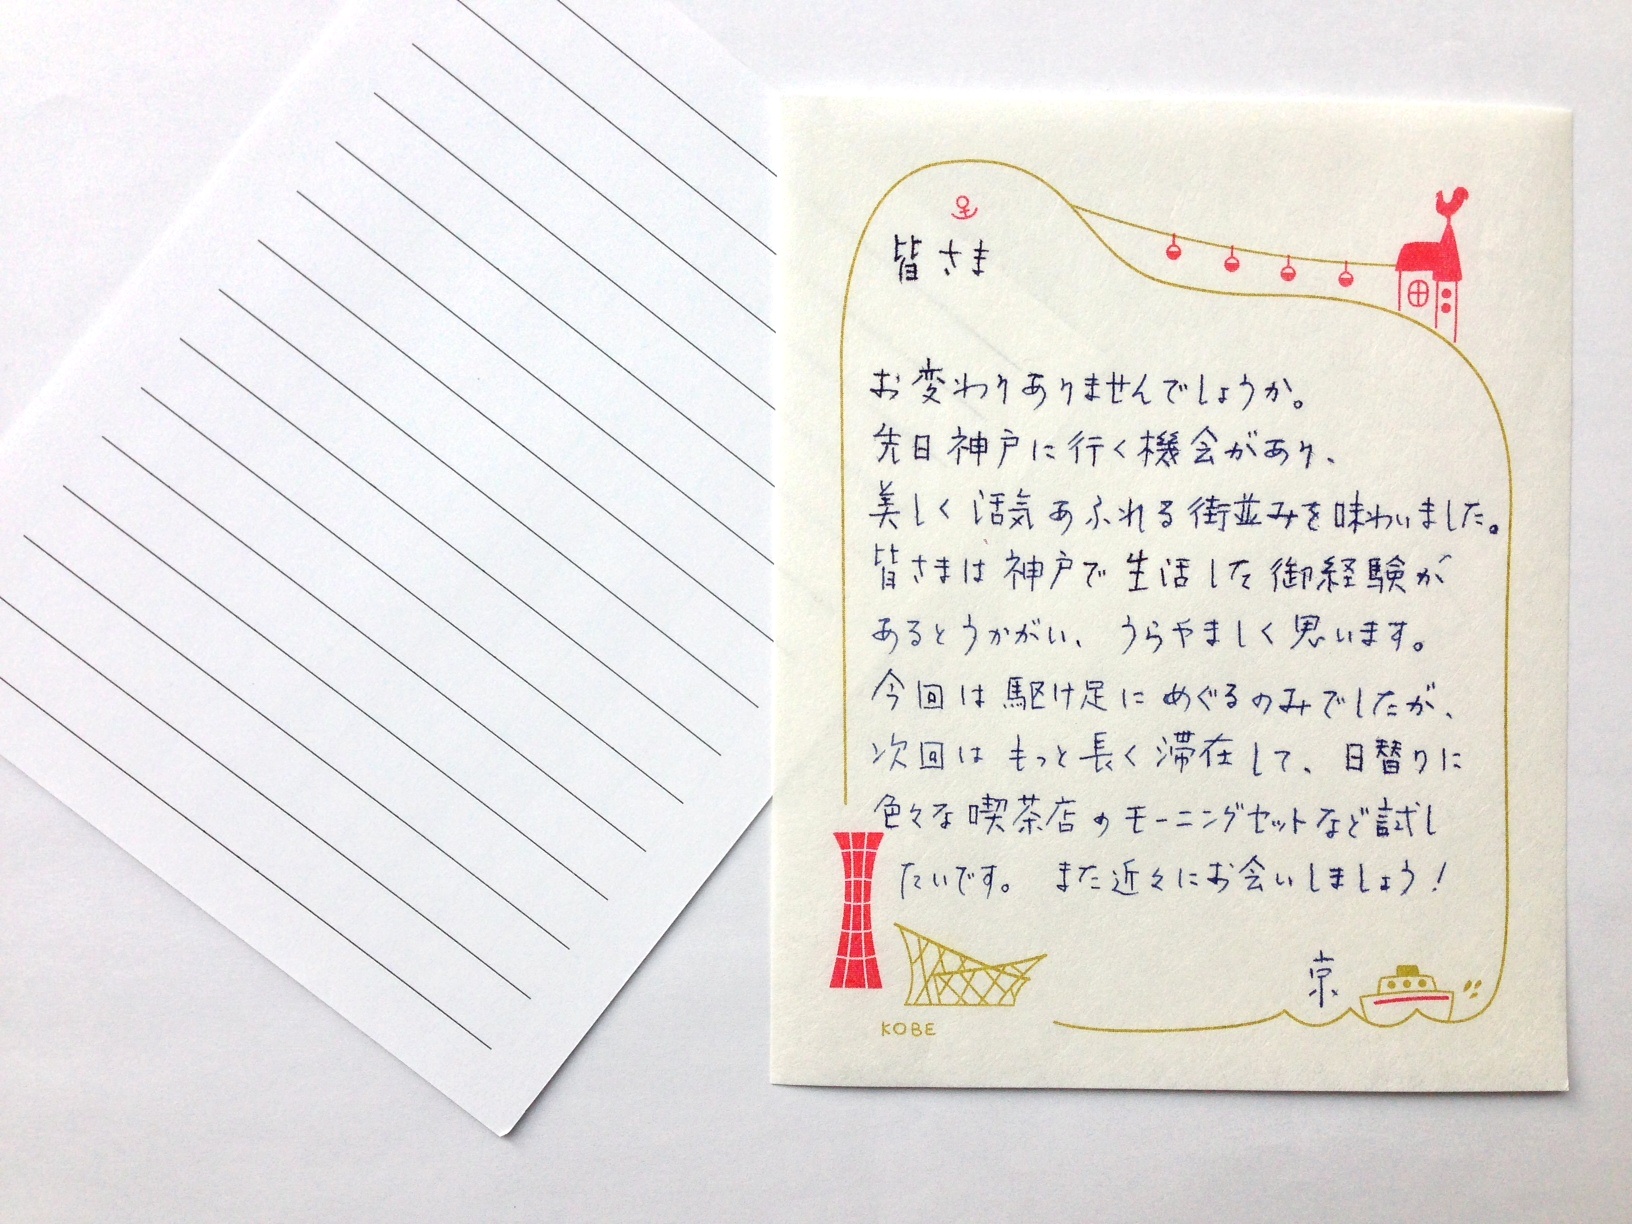 皆さま
お変わりありませんでしょうか。
先日神戸に行く機会があり、
美しく活気あふれる街並みを味わいました。
皆さまは神戸で生活した御経験が
あるとうかがい、うらやましく思います。
今回は駆け足にめぐるのみでしたが、
次回はもっと長く滞在して、日替りに
色々な喫茶店のモーニングセットなど試し
たいです。 また近々にお会いしましょう!
京
KOBE